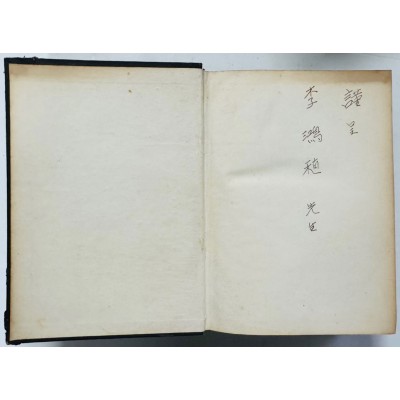 謹呈
李鴻稙先生